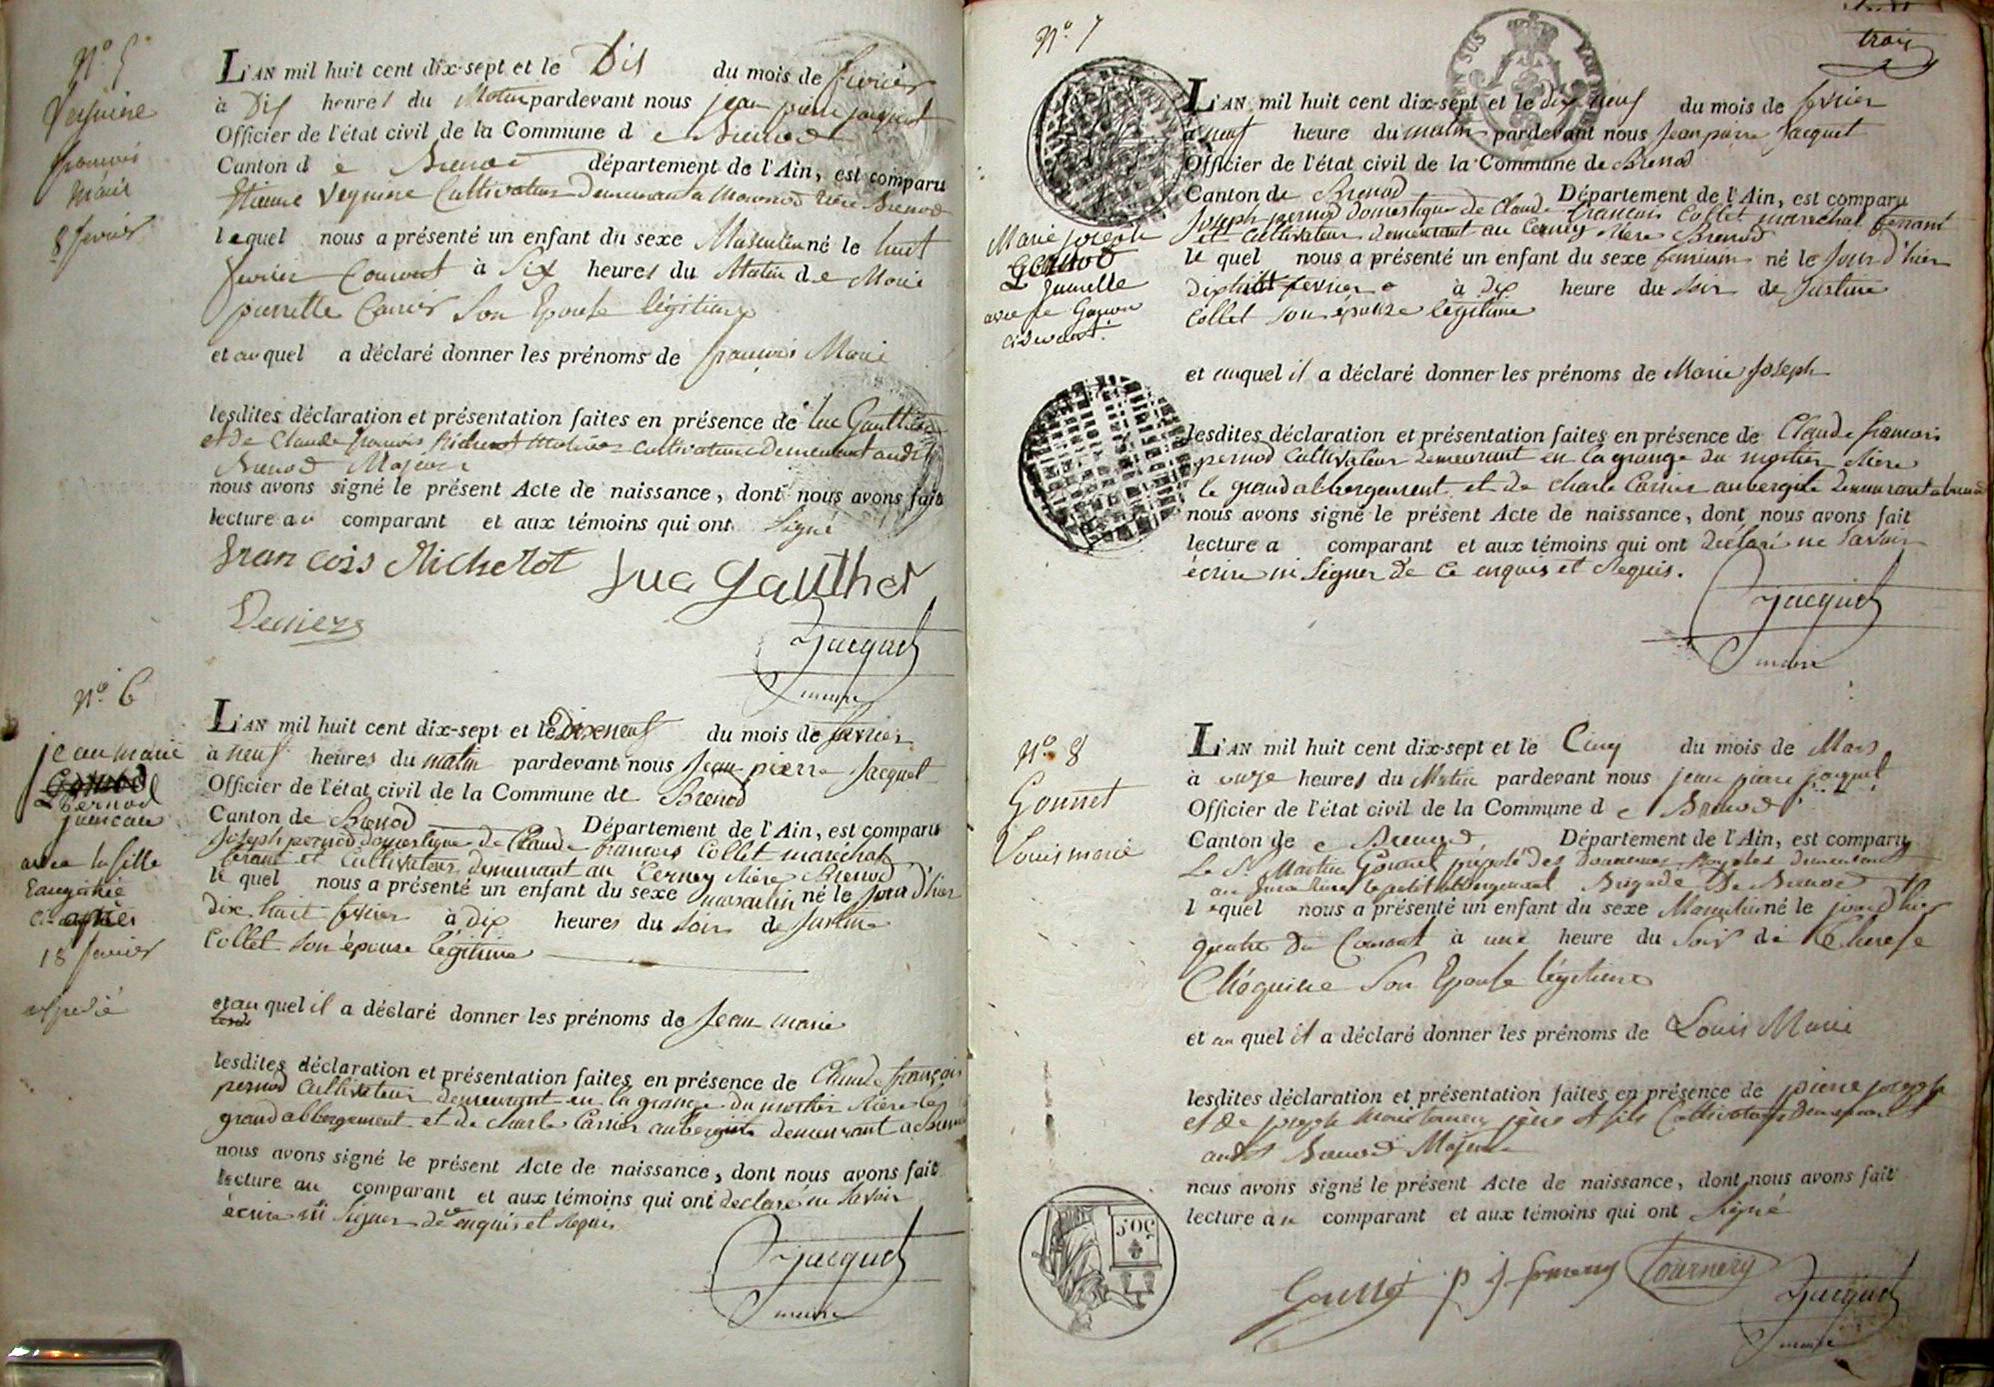 N.º 5
françois
marie
8 fevrier
L'AN mil huit cent dix-sept et le Dix du mois de fevrier
à Dix heures du Matin pardevant nous jean pierre jacquet
Officier de l'état civil de la Commune d e Brenod
Canton d e Brenod département de l'Ain, est comparu
Etienne Cultivateur Demeurant a rière Brenod
lequel nous a présenté un enfant du sexe Masculin né le huit
fevrier Courant à Six heures du Matin d e Marie
pierrette Carrier Son Epouse légitime
et auquel a déclaré donner les prénoms de françois Marie
lesdites déclaration et présentation faites en présence de luc Gauthier
et de Claude françois Richerot cultivateurs Demeurant audit
Brenod Majeurs
nous avons signé le présent Acte de naissance, dont nous avons fait
lecture au comparant et aux témoins qui ont Signé
francois Richerot luc gauthier
Jacquet
maire
N.º 6
jean marie
pernod
jumeau
avec la fille
ci après
18 fevrier
L'AN mil huit cent dix-sept et le Dix neuf du mois de fevrier
à neuf heures du matin pardevant nous Jean pierre Jacquet
Officier de l'état civil de la Commune de Brenod
Canton de Brenod Département de l'Ain, est comparu
Joseph pernod domestique de Claude francois Collet maréchal
ferant et Cultivateur demeurant au Cerney rière Brenod
le quel nous a présenté un enfant du sexe masculin né le jour d'hier
dix huit fevrier à dix heures du soir de Justine
Collet son épouse légitime
et au quel il a déclaré donner les prénoms de Jean marie
lesdites déclaration et présentation faites en présence de Claude françois
pernod Cultivateur demeurant en la grange du mortier rière le
grand abbergement et de charle Carrier aubergiste demeurant a brenod
nous avons signé le présent Acte de naissance, dont nous avons fait
lecture au comparant et aux témoins qui ont declaré ne savoir
écrire ni signer de ce enquis et requis
Jacquet
maire
N.º 7
trois
Marie joseph
Jumelle
avec le Garçon
L'AN mil huit cent dix-sept et le dix neuf du mois de fevrier
à neuf heure du matin pardevant nous Jean pierre Jacquet
Officier de l'état civil de la Commune de Brenod
Canton de Brenod Département de l'Ain, est comparu
Joseph pernod domestique de Claude francois Collet maréchal ferant
et cultivateur demeurant au Cerney rière Brenod
le quel nous a présenté un enfant du sexe feminin né le jour d'hier
dix huit fevrier à dix heure du soir de Justine
Collet son épouse légitime
et auquel il a déclaré donner les prénoms de Marie Joseph
lesdites déclaration et présentation faites en présence de Claude francois
pernod Cultivateur demeurant en la grange du mortier rière
le grand abbergement et de charle Carrier aubergiste demeurant a brenod
nous avons signé le présent Acte de naissance, dont nous avons fait
lecture a comparant et aux témoins qui ont declaré ne savoir
écrire ni signer de ce enquis et requis.
Jacquet
maire
N.º 8
Gonnet
Louis marie
L'AN mil huit cent dix-sept et le Cinq du mois de Mars
à onze heures du Matin pardevant nous jean pierre jacquet
Officier de l'état civil de la Commune d e Brenod
Canton de e Brenod Département de l'Ain, est comparu
Le S.r Martin Gonnet préposé des Douannes Royales demeurant
au rière le petit abbergement Brigade De Brenod
lequel nous a présenté un enfant du sexe Masculin né le jour d'hier
quatre Du Courant à une heure du Soir de Therese
Son Epouse légitime
et au quel il a déclaré donner les prénoms de Louis Marie
lesdites déclaration et présentation faites en présence de pierre joseph
et de joseph Marie père et fils Cultivateurs demeurant
audit Brenod Majeurs
nous avons signé le présent Acte de naissance, dont nous avons fait
lecture au comparant et aux témoins qui ont Signé
50 C
Tournery
Jacquet
maire